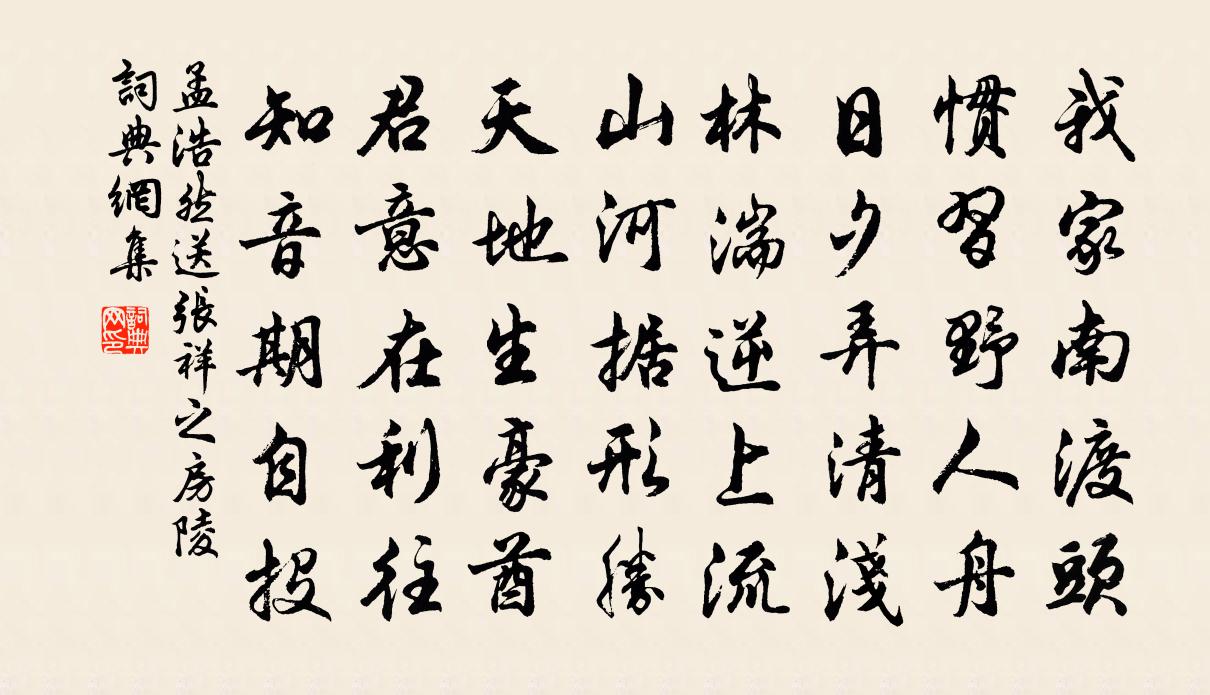 我家南渡頭
慣習野人舟
日夕弄清淺
林湍逆上流
山河据形勝
天地生豪酋
君意在利往
知音期自投
孟浩然送張祥之房陵
詞典網集
詞典网印